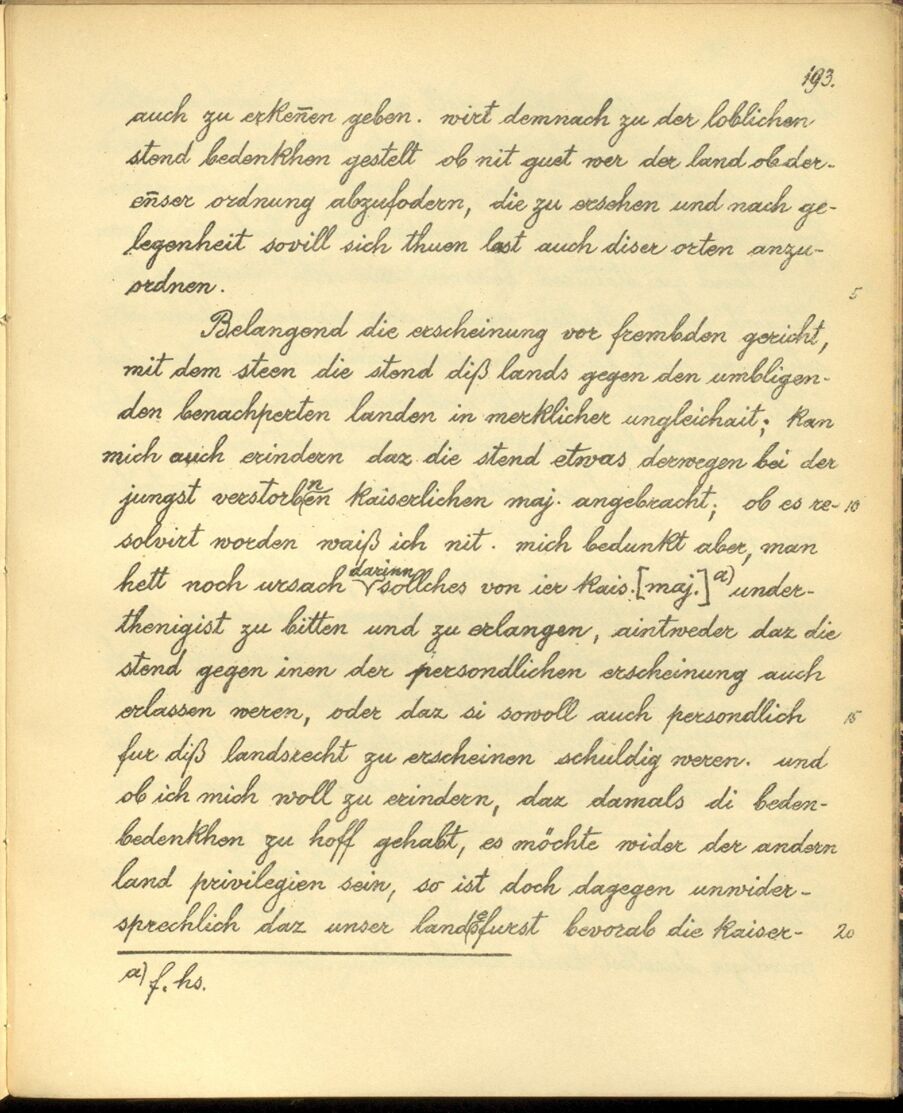 193.
auch zu erken̄en geben. wirt demnach zu der loblichen
stend bedenkhen gestelt ob nit guet wer der land ob der-
en̄ser ordnung abzufodern, die zu ersehen und nach ge-
legenheit sovill sich thuen last auch diser orten anzu-
ordnen. 5
Belangend die erscheinung vor frembden gericht,
mit dem steen die stend diß lands gegen den umbligen-
den benachperten landen in merklicher ungleichait; kan
mich auch erindern daz die stend etwas derwegen bei der
jungst verstorben kaiserlichen maj. angebracht; ob es re- 10
solvirt worden waiß ich nit. mich bedunkt aber, man
hett noch ursach darinn sollches von ier kais. [maj.] a) under-
thenigist zu bitten und zu erlangen, aintweder daz die
stend gegen inen der persondlichen erscheinung auch
erlassen weren, oder daz si sowoll auch persondlich 15
fur diß landsrecht zu erscheinen schuldig weren. und
ob ich mich woll zu erindern, daz damals di beden-
bedenkhen zu hoff gehabt, es möchte wider der andern
land privilegien sein, so ist doch dagegen unwider-
sprechlich daz unser landsfurst bevorab die kaiser- 20
a) f. hs.